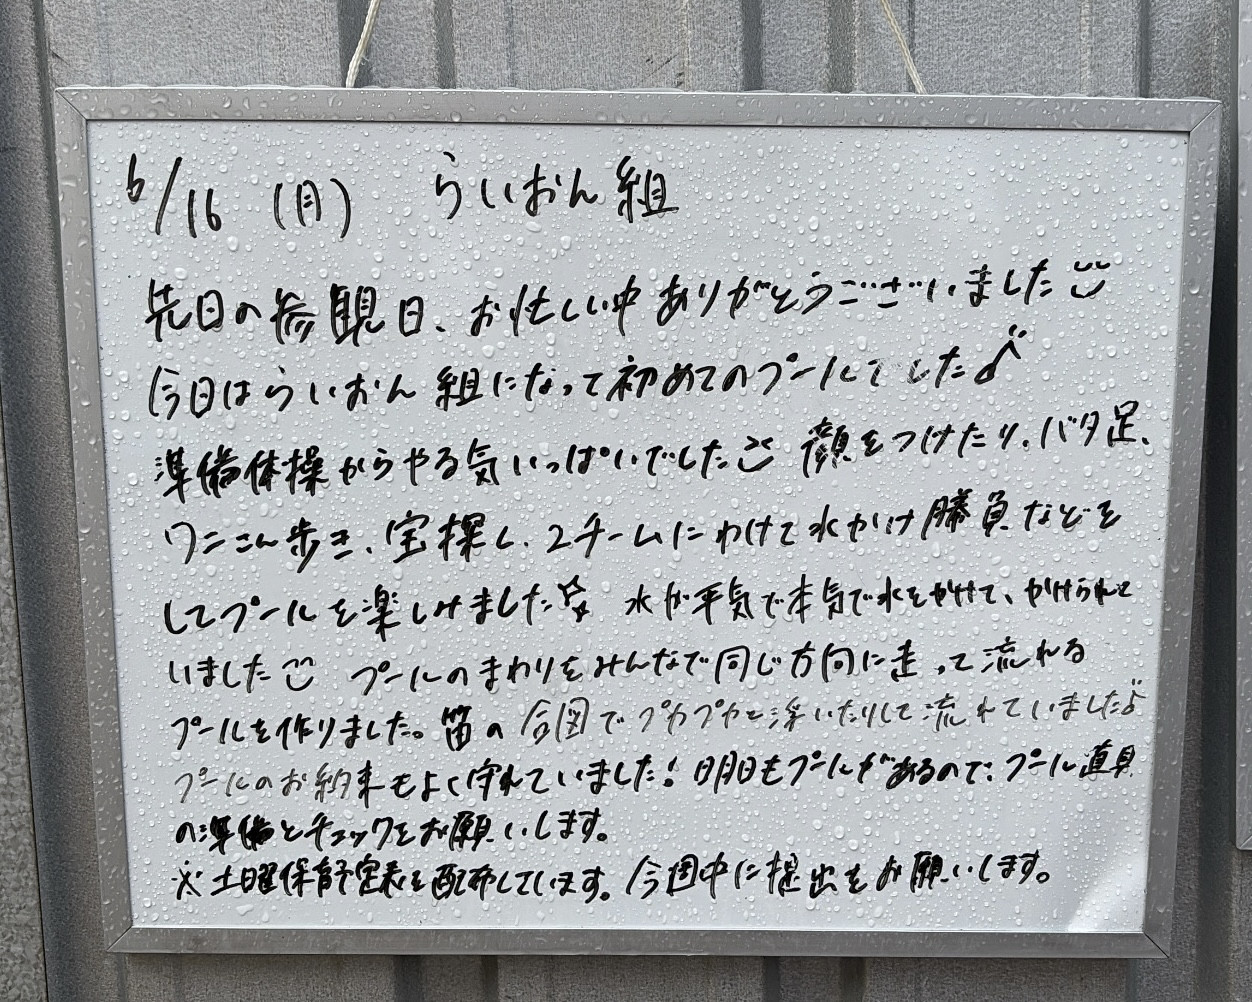 6/16 (月) らいおん組
先日の参観日、お忙しい中ありがとうございました
今日はらいおん組になって初めてのプールでした♪
準備体操からやる気いっぱいでした 顔をつけたり、バタ足、
ワニさん歩き、宝探し、2チームにわけて水かけ勝負などを
してプールを楽しみました☆ 水が平気で本気で水をかけて、かけられて
いました プールのまわりをみんなで同じ方向に走って流れる
プールを作りました。笛の合図でプカプカと浮いたりして流れていました♪
プールのお約束もよく守れていました！明日もプールがあるので、プール道具
の準備とチェックをお願いします。
※土曜保育予定表を配布しています。今週中に提出をお願いします。